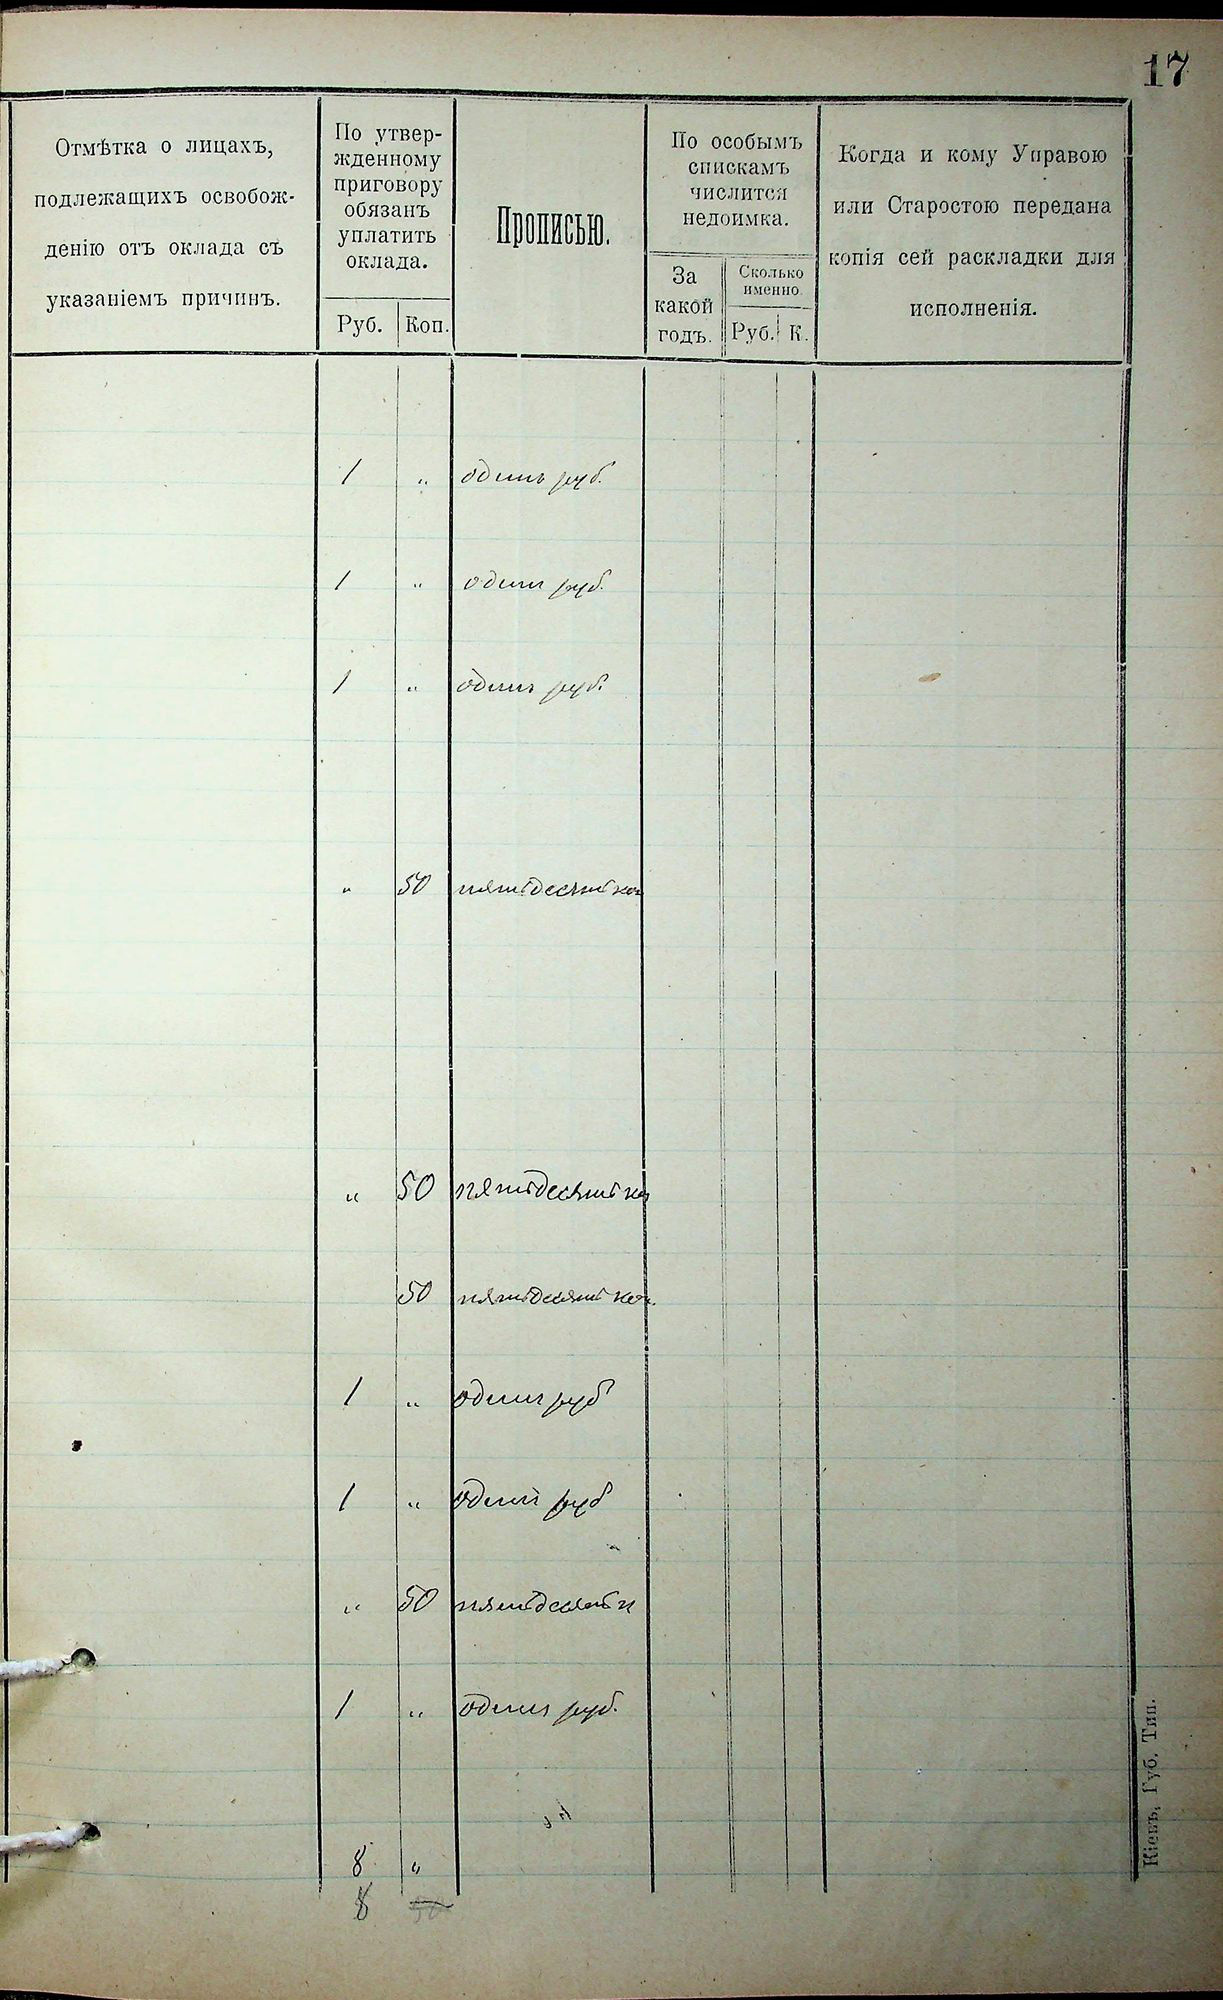 17
Отмѣтка о лицахъ,
подлежащихъ освобож-
денію отъ оклада съ
указаніемъ причинъ.
По утвер-
жденному
приговору
обязанъ
уплатить
оклада.
Руб. Коп.
Прописью.
По особымъ
спискамъ
числится
недоимка.
За
какой
годъ.
Сколько
именно.
Руб. К.
Когда и кому Управою
или Старостою передана
копія сей раскладки для
исполненія.
1 " одинъ руб.
1 " одинъ руб.
1 " одинъ руб.
" 50 пятьдесятъ коп
" 50 пятьдесятъ коп
50 пятьдесятъ коп.
1 " одинъ руб
1 " одинъ руб
" 50 пятьдесятъ к
1 " одинъ руб.
8 "
8
Кіевъ, Губ. Тип.